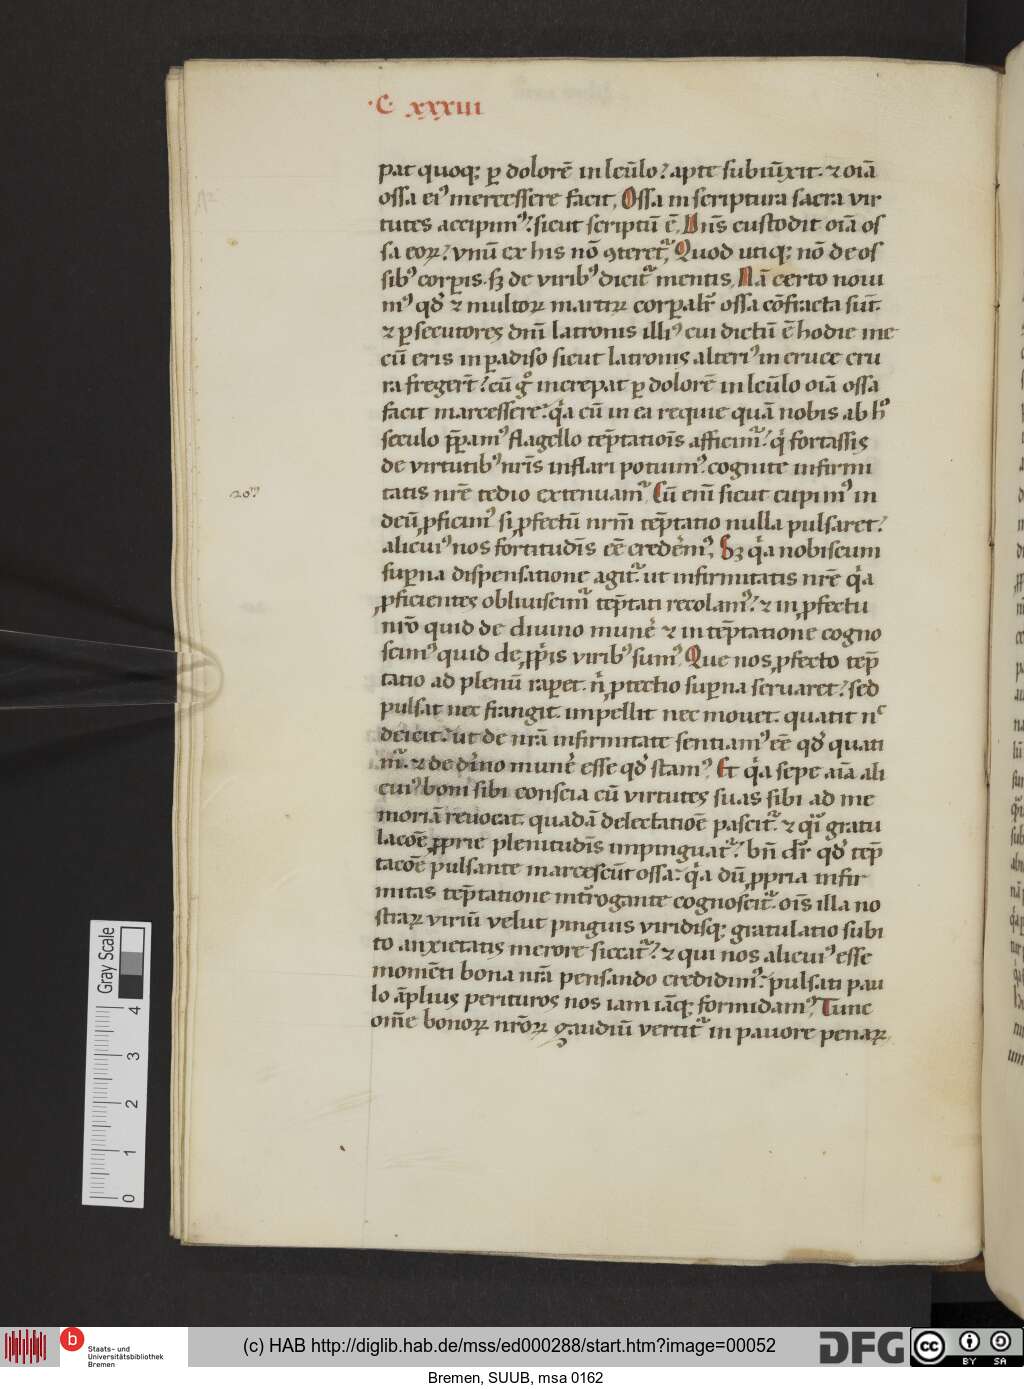 ·C· xxxiii
pat quoq; ꝑ dolorē in lcūlo? apte subiūxit. ⁊ oīa
ossa eiꝰ mercessere facit. Ossa in scriptura sacra vir
tutes accipimꝰ? sicut scriptū ē. Dn̄s custodit oīa os
sa eoꝝ? vnū ex his nō ꝯteretᷣ. Quod utiq; nō de os
sibꝰ corꝑis. sꝫ de viribꝰ dicitᷣ mentis. Nā certo noui
mꝰ qđ ⁊ multoꝝ martiꝝ corꝑalr̄ ossa cōfracta sūt.
⁊ ꝑsecutores dn̄i latronis illiꝰ cui dictū ē hodie me
cū eris in ꝑadiso sicut latronis alteriꝰ in cruce cru
ra fregerт̄? cū gͦ increpat ꝑ dolorē in lcūlo oīa ossa
facit marcessere? qͥa cū in ea requie quā nobis ab hͦ
seculo p̄ꝑamꝰ flagello tep̄tatiōis afficimᷣ? qͥ fortassis
de virtutibꝰ nr̄is inflari potuimꝰ. cognite infirmi
tatis nr̄e tedio extenuamᷣ. Cū eni̅ sicut cupimꝰ in
deū ꝓficimꝰ si ꝓfectū nrm̄ tep̄tatio nulla pulsaret?
alicuiꝰ nos fortitudīs eē credem̓ꝰ. Sꝫ qͥa nobiscum
suꝑna dispensatione agitᷣ. ut infirmitatis nr̄e qͥa
ꝓficientes obliuiscimᷣ tep̄tati recolamꝰ? ⁊ in ꝓfectu
nr̄o quid de diuino mune̓ ⁊ in tep̄tatione cogno
scimꝰ quid de ꝓp̄is viribꝰ sumꝰ. Que nos ꝓfecto tep̄
tatio ad plenū raꝑet. nͥ ꝓtectio suꝑna seruaret? sed
pulsat nec frangit. impellit nec mouet. quatit nᶜ
deicit. ut de nr̄a infirmitate sentiamꝰ eē qđ quati
mᷣ. ⁊ de diͥno mune̓ esse qđ stamꝰ. Et qͥa sepe aīa ali
cuiꝰ boni sibi conscia cū virtutes suas sibi ad me
moriā reuocat. quadā delectatiōe pascitᷣ. ⁊ qͥ gratu
lacōe ꝓprie plenitudīs impinguatᷣ? bn̄ dr̄ qđ tep̄
tacōe pulsante marcescūt ossa: qͥa dū ꝓpria infir
mitas tep̄tatione int̓rogante cognoscitᷣ. oīs illa no
straꝝ viriū velut pinguis viridisq; gratulatio subi
to anxietatis merore siccatᷣ? ⁊ qui nos alicuiꝰ esse
momēti bona nr̄a pensando credidimꝰ: pulsati pau
lo āplius perituros nos iam iāq; formidamꝰ. Tunc
om̄e bonoꝝ nr̄oꝝ gaudiū vertitᷣ in pauore penaꝝ
Gray Scale
4
3
2
1
0
b
Staats- und
Universitätsbibliothek
Bremen
(c) HAB http://diglib.hab.de/mss/ed000288/start.htm?image=00052
DFG
cc
BY SA
Bremen, SUUB, msa 0162